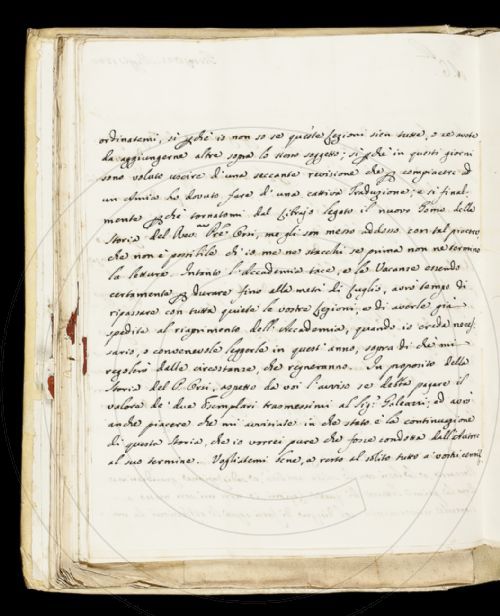 ordinatemi, sì pchè io non so se queste Lezioni sien tutte, o se avete
da aggiungerne altre sopra lo stesso soggetto; sì pchè in questi giorni
sono voluto uscire d'una seccante revisione che p compiacere ad
un Amico ho dovuto fare d'una cattiva Traduzione; e sì final-
mente pchè tornatomi dal Librajo legato il nuovo Tomo della
Storia del Rev.mo Pre Orsi, me gli son messo addosso con tal piacere
che non è possibile ch'io me ne stacchi se prima non ne termino
la lettura. Intanto l'Accademia tace, e le Vacanze essendo
certamente p durare fino alla metà di Luglio, avrò tempo di
ripassare con tutta quiete le vostre Lezioni, e di averle già
spedite al riaprimento dell'Accademia, quando io creda neces-
sario, o convenevole leggerle in quest'anno, sopra di che mi
regolerò dalle circostanze, che regneranno. In proposito della
Storia del P. Orsi, aspetto da voi l'avviso se debba pagare il
valore de' due Esemplari trasmessimi al Sig: Paleazzi; ed avrò
anche piacere che mi avvisiate in che stato è la continuazione
di questa Storia, che io vorrei pure che fosse condotta dall'Autore
al suo termine. Vogliatemi bene, e resto al solito tutto a' vostri